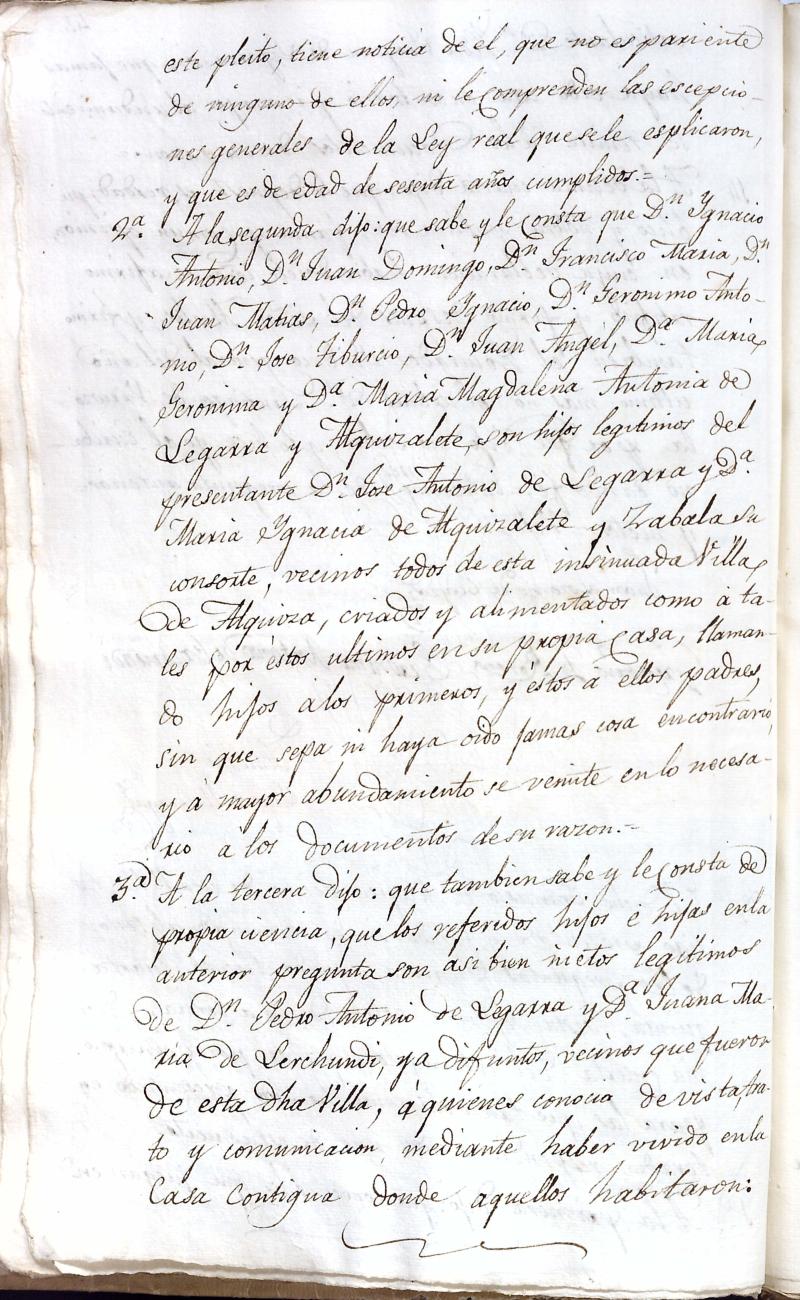 este pleito, tiene noticia de él, que no es pariente
de ninguno de ellos, ni le comprenden las escepcio-
nes generales de la Ley real que se le esplicaron,
y que es de edad de sesenta años cumplidos.=
2.ª A la segunda dijo: que sabe y le consta que D.n Ygnacio
Antonio, D.n Juan Domingo, D.n Francisco Maria, D.n
Juan Matias, D.n Pedro Ygnacio, D.n Geronimo Anto-
nio, D.n Jose Tiburcio, D.n Juan Angel, D.ª Maria
Geronima y D.ª Maria Magdalena Antonia de
Legarra y Alquizalete, son hijos legitimos del
presentante D.n Jose Antonio de Legarra y D.ª
Maria Ygnacia de Alquizalete y Zabala su
consorte, vecinos todos de esta insinuada Villa
de Alquiza, criados y alimentados como à ta-
les por éstos ultimos en su propia Casa, llaman-
do hijos à los primeros, y éstos à ellos padres,
sin que sepa ni haya oido jamas cosa en contrario,
y à mayor abundamiento se remite en lo necesa-
rio à los documentos de su razon.=
3.ª A la tercera dijo: que tambien sabe y le consta de
propia ciencia, que los referidos hijos é hijas en la
anterior pregunta son asi bien nietos legitimos
de D.n Pedro Antonio de Legarra y D.ª Juana Ma-
ria de Lerchundi, ya difuntos, vecinos que fueron
de esta dha Villa, à quienes conocia de vista, tra-
to y comunicacion, mediante haber vivido en la
Casa Contigua donde aquellos habitaron: